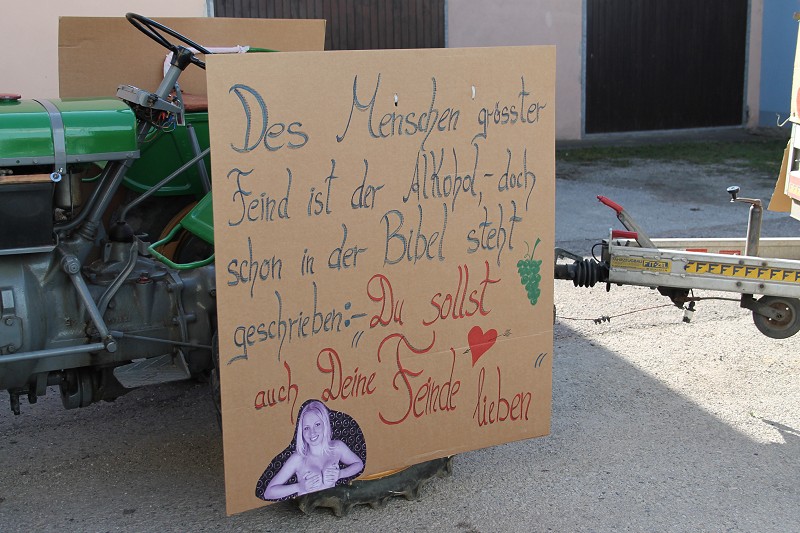 Des Menschen grösster
Feind ist der Alkohol,- doch
schon in der Bibel steht
geschrieben:- „Du sollst
auch Deine Feinde lieben"